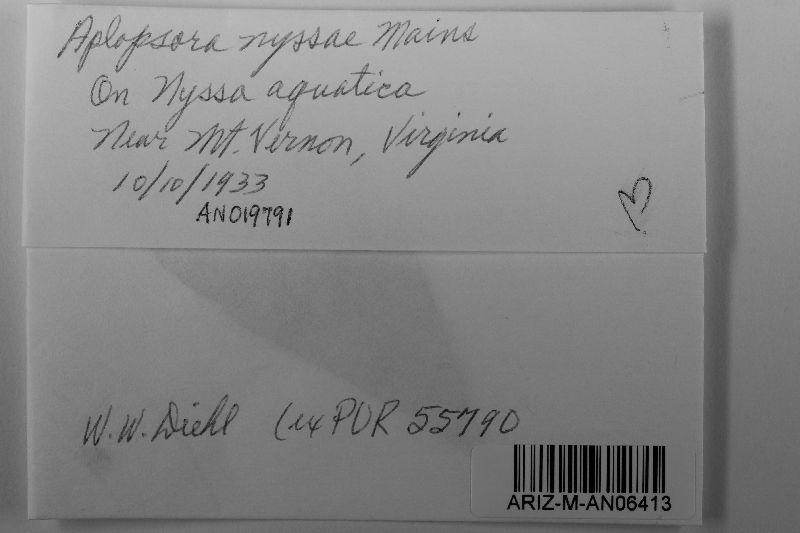 Aplopsora nyssae Mains
On Nyssa aquatica
Near Mt. Vernon, Virginia
10/10/1933
AN019791
W. W. Diehl (ex PUR 55790
ARIZ-M-AN06413